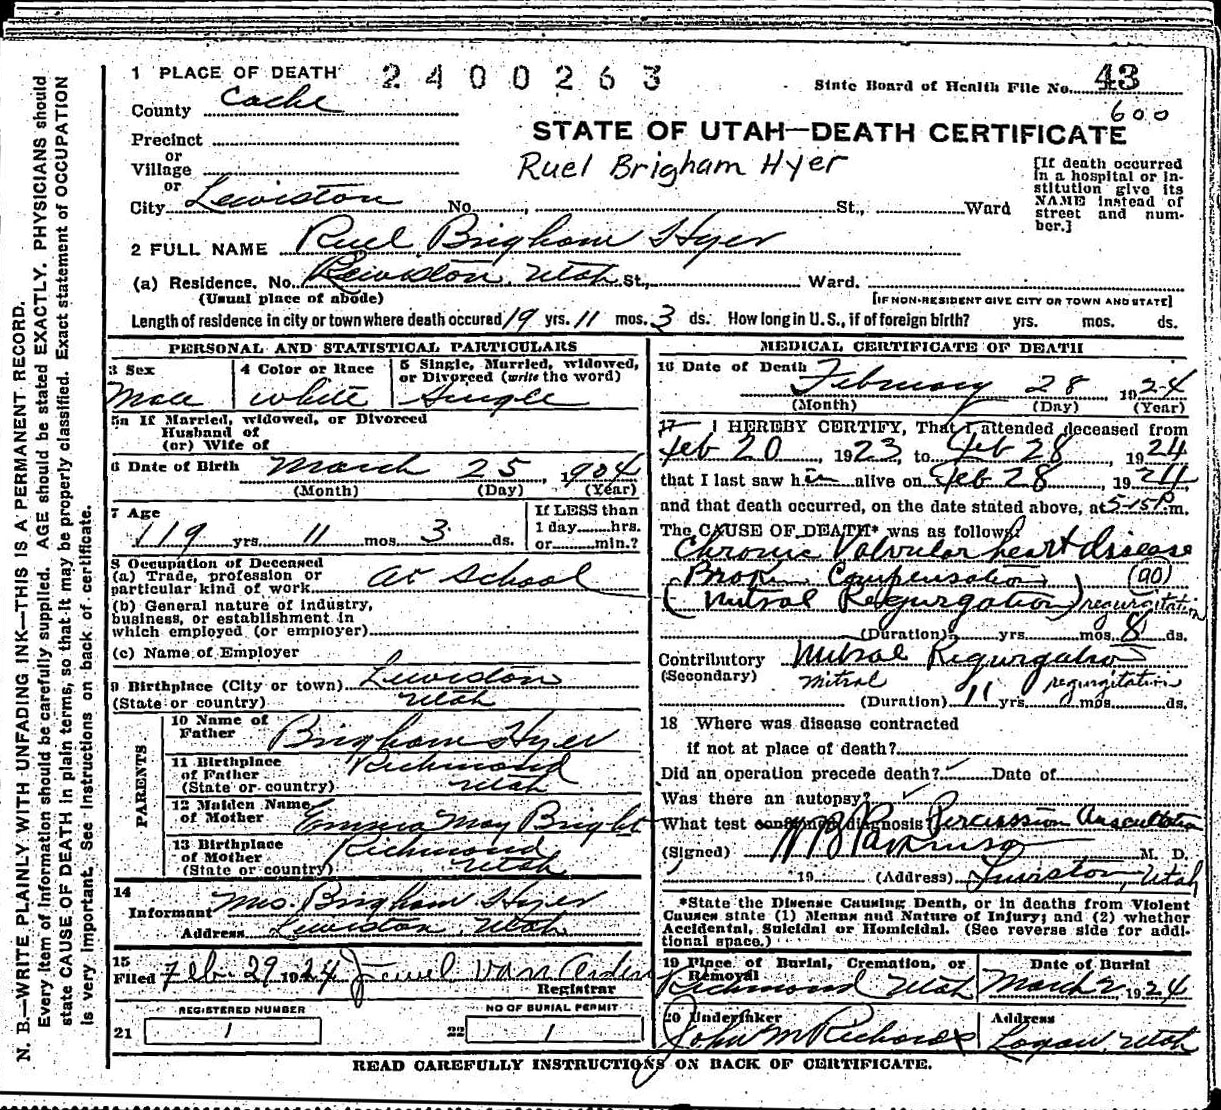 1 PLACE OF DEATH 2400263 State Board of Health File No. 43
County Cache 600
STATE OF UTAH—DEATH CERTIFICATE
Precinct
or
Village
or
Ruel Brigham Hyer
[If death occurred
in a hospital or in-
stitution give its
NAME instead of
street and num-
ber.]
City Lewiston No. , St., Ward
2 FULL NAME Ruel Brigham Hyer
(a) Residence. No. Lewiston, Utah St., Ward.
(Usual place of abode) [IF NON-RESIDENT GIVE CITY OR TOWN AND STATE]
Length of residence in city or town where death occured 19 yrs. 11 mos. 3 ds. How long in U.S., if of foreign birth? yrs. mos. ds.
PERSONAL AND STATISTICAL PARTICULARS
3 Sex
Male
4 Color or Race
White
5 Single, Married, widowed,
or Divorced (write the word)
Single
5a If Married, widowed, or Divorced
Husband of
(or) Wife of
6 Date of Birth March 25, 1904
(Month) (Day) (Year)
7 Age
19 yrs. 11 mos. 3 ds.
If LESS than
1 day hrs.
or min.?
8 Occupation of Deceased
(a) Trade, profession or
particular kind of work At School
(b) General nature of industry,
business, or establishment in
which employed (or employer)
(c) Name of Employer
9 Birthplace (City or town) Lewiston
(State or country) Utah
PARENTS
10 Name of
Father Brigham Hyer
11 Birthplace
of Father Richmond
(State or country) Utah
12 Maiden Name
of Mother Emma May Bright
13 Birthplace
of Mother Richmond
(State or country) Utah
14
Informant Mrs. Brigham Hyer
Address Lewiston, Utah
15
Filed Feb. 29 1924 Jewel Van Orden
Registrar
REGISTERED NUMBER
21 1
NO OF BURIAL PERMIT
22 1
MEDICAL CERTIFICATE OF DEATH
16 Date of Death February 28 1924
(Month) (Day) (Year)
17 I HEREBY CERTIFY, That I attended deceased from
Feb 20, 1923, to Feb 28, 1924
that I last saw him alive on Feb 28, 1924
and that death occurred, on the date stated above, at 5-15P.m.
The CAUSE OF DEATH* was as follows:
Chronic Valvular heart disease
Broken Compensation (90)
(Mitral Regurgation) regurgitation
(Duration) yrs. mos. 8 ds.
Contributory Mitral Regurgation
(Secondary) Mitral regurgitation
(Duration) 11 yrs. mos. ds.
18 Where was disease contracted
if not at place of death?
Did an operation precede death? Date of
Was there an autopsy?
What test confirmed diagnosis Percussion Auscultation
(Signed) W B Parkinson M. D.
, 19 (Address) Lewiston, Utah
*State the Disease Causing Death, or in deaths from Violent
Causes state (1) Means and Nature of Injury; and (2) whether
Accidental, Suicidal or Homicidal. (See reverse side for addi-
tional space.)
19 Place of Burial, Cremation, or
Removal
Richmond Utah
Date of Burial
March 2, 1924
20 Undertaker
John M Richards
Address
Logan, Utah
READ CAREFULLY INSTRUCTIONS ON BACK OF CERTIFICATE.
N. B.—WRITE PLAINLY WITH UNFADING INK—THIS IS A PERMANENT RECORD.
Every item of information should be carefully supplied. AGE should be stated EXACTLY. PHYSICIANS should
state CAUSE OF DEATH in plain terms, so that it may be properly classified. Exact statement of OCCUPATION
is very important. See instructions on back of certificate.